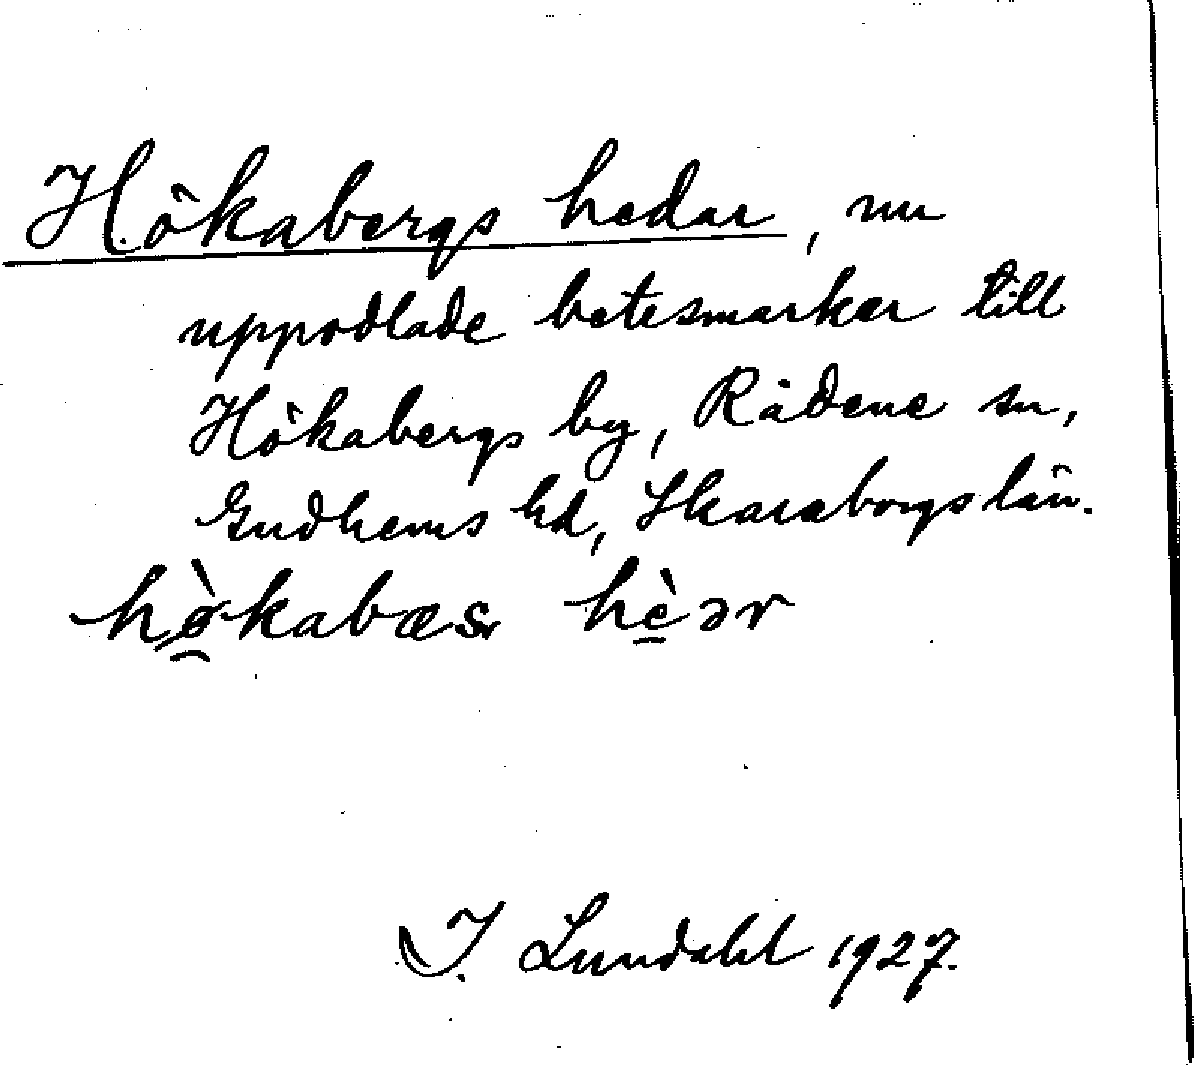 Hökabergs hedar, nu
uppodlade betesmarker till
Hökabergs by, Rådene sn,
Gudhems hd, Skaraborgs län.
hø̀kabæsr hèər
I. Lundahl 1927.